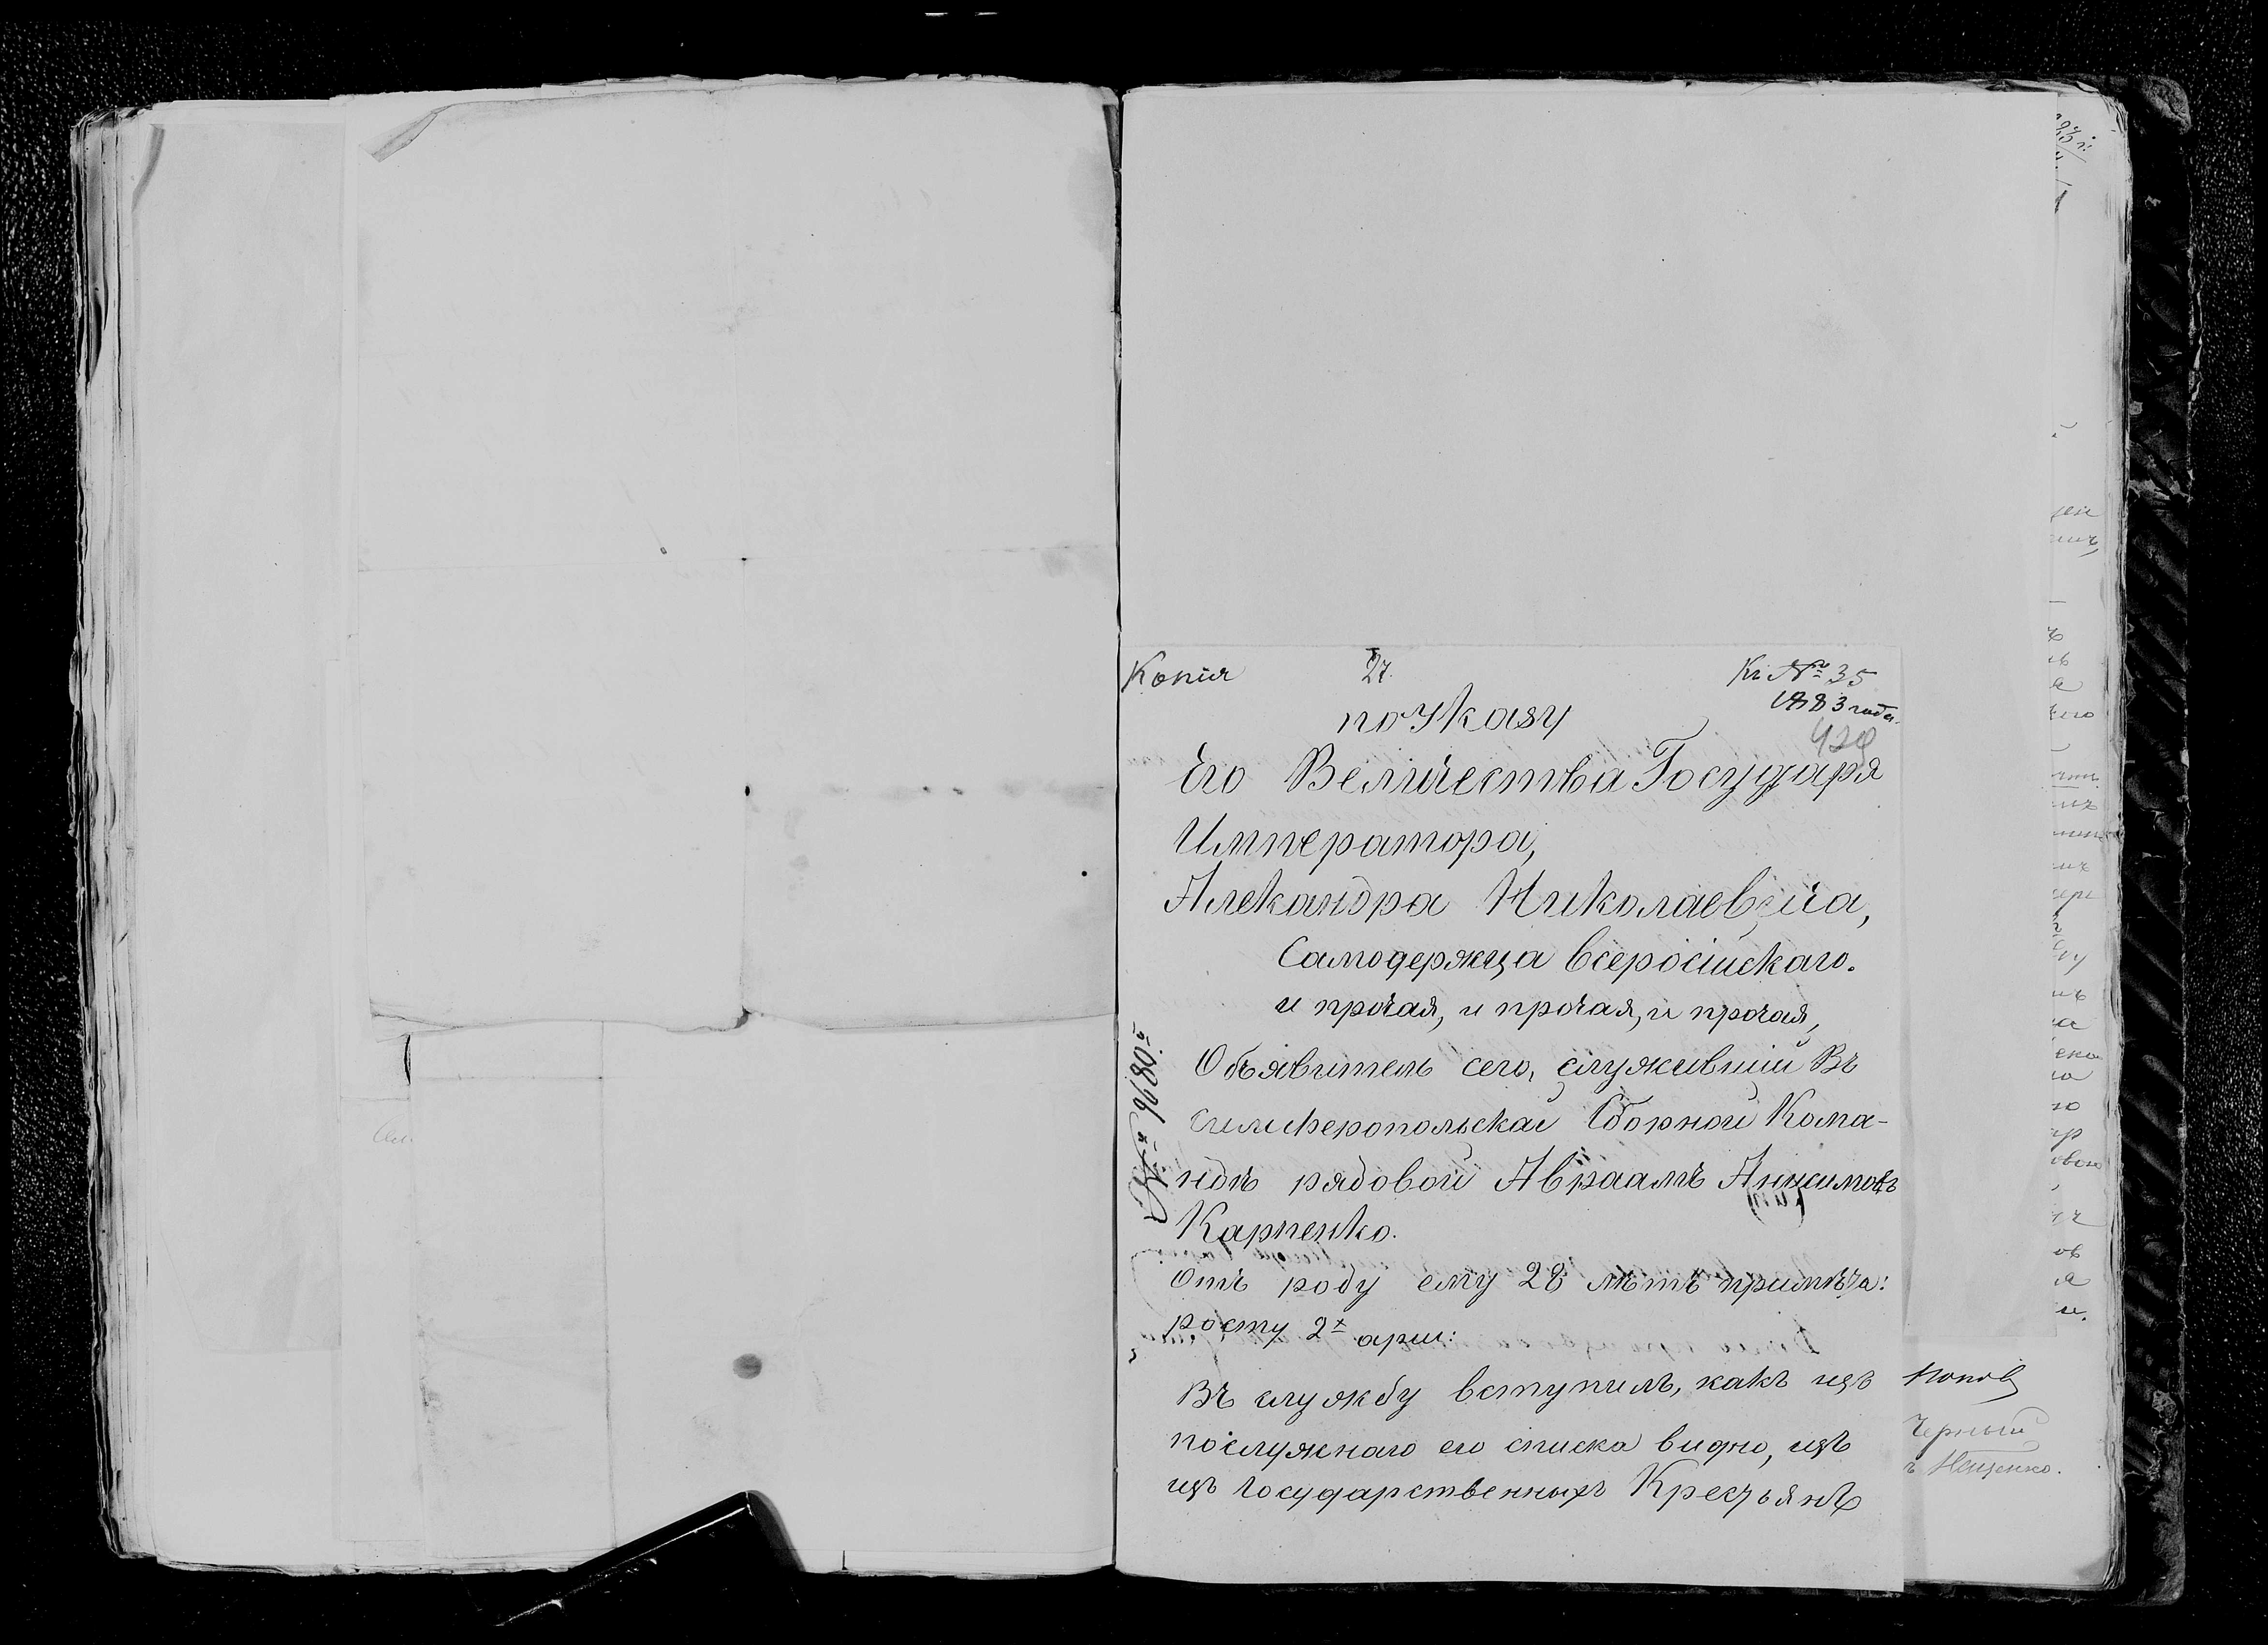 Копія 27. Къ № 35
1883 года.
429
по Указу
Его Величества Государя
Императора,
Александра Николаевича,
Самодержца всеросійскаго.
и прочая, и прочая, и прочая,
Объявитель сего, служившій Въ
симферопольской Сборной Кома-
ндѣ рядовой Авраамъ Анисимовъ
Карпенко.
Отъ роду ему 28 лѣтъ примѣта:
росту 2х арш:
Въ службу вступилъ, какъ изъ
послужнаго его списка видно, изъ
изъ государственныхъ Крестьянъ
№ 9680й
Попов
Черный
ъ Ищенко.